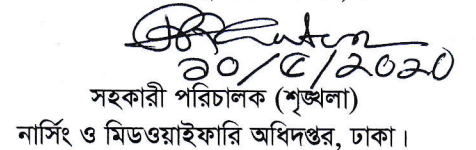 ২০/৫/২০২০
সহকারী পরিচালক (শৃঙ্খলা)
নার্সিং ও মিডওয়াইফারি অধিদপ্তর, ঢাকা।